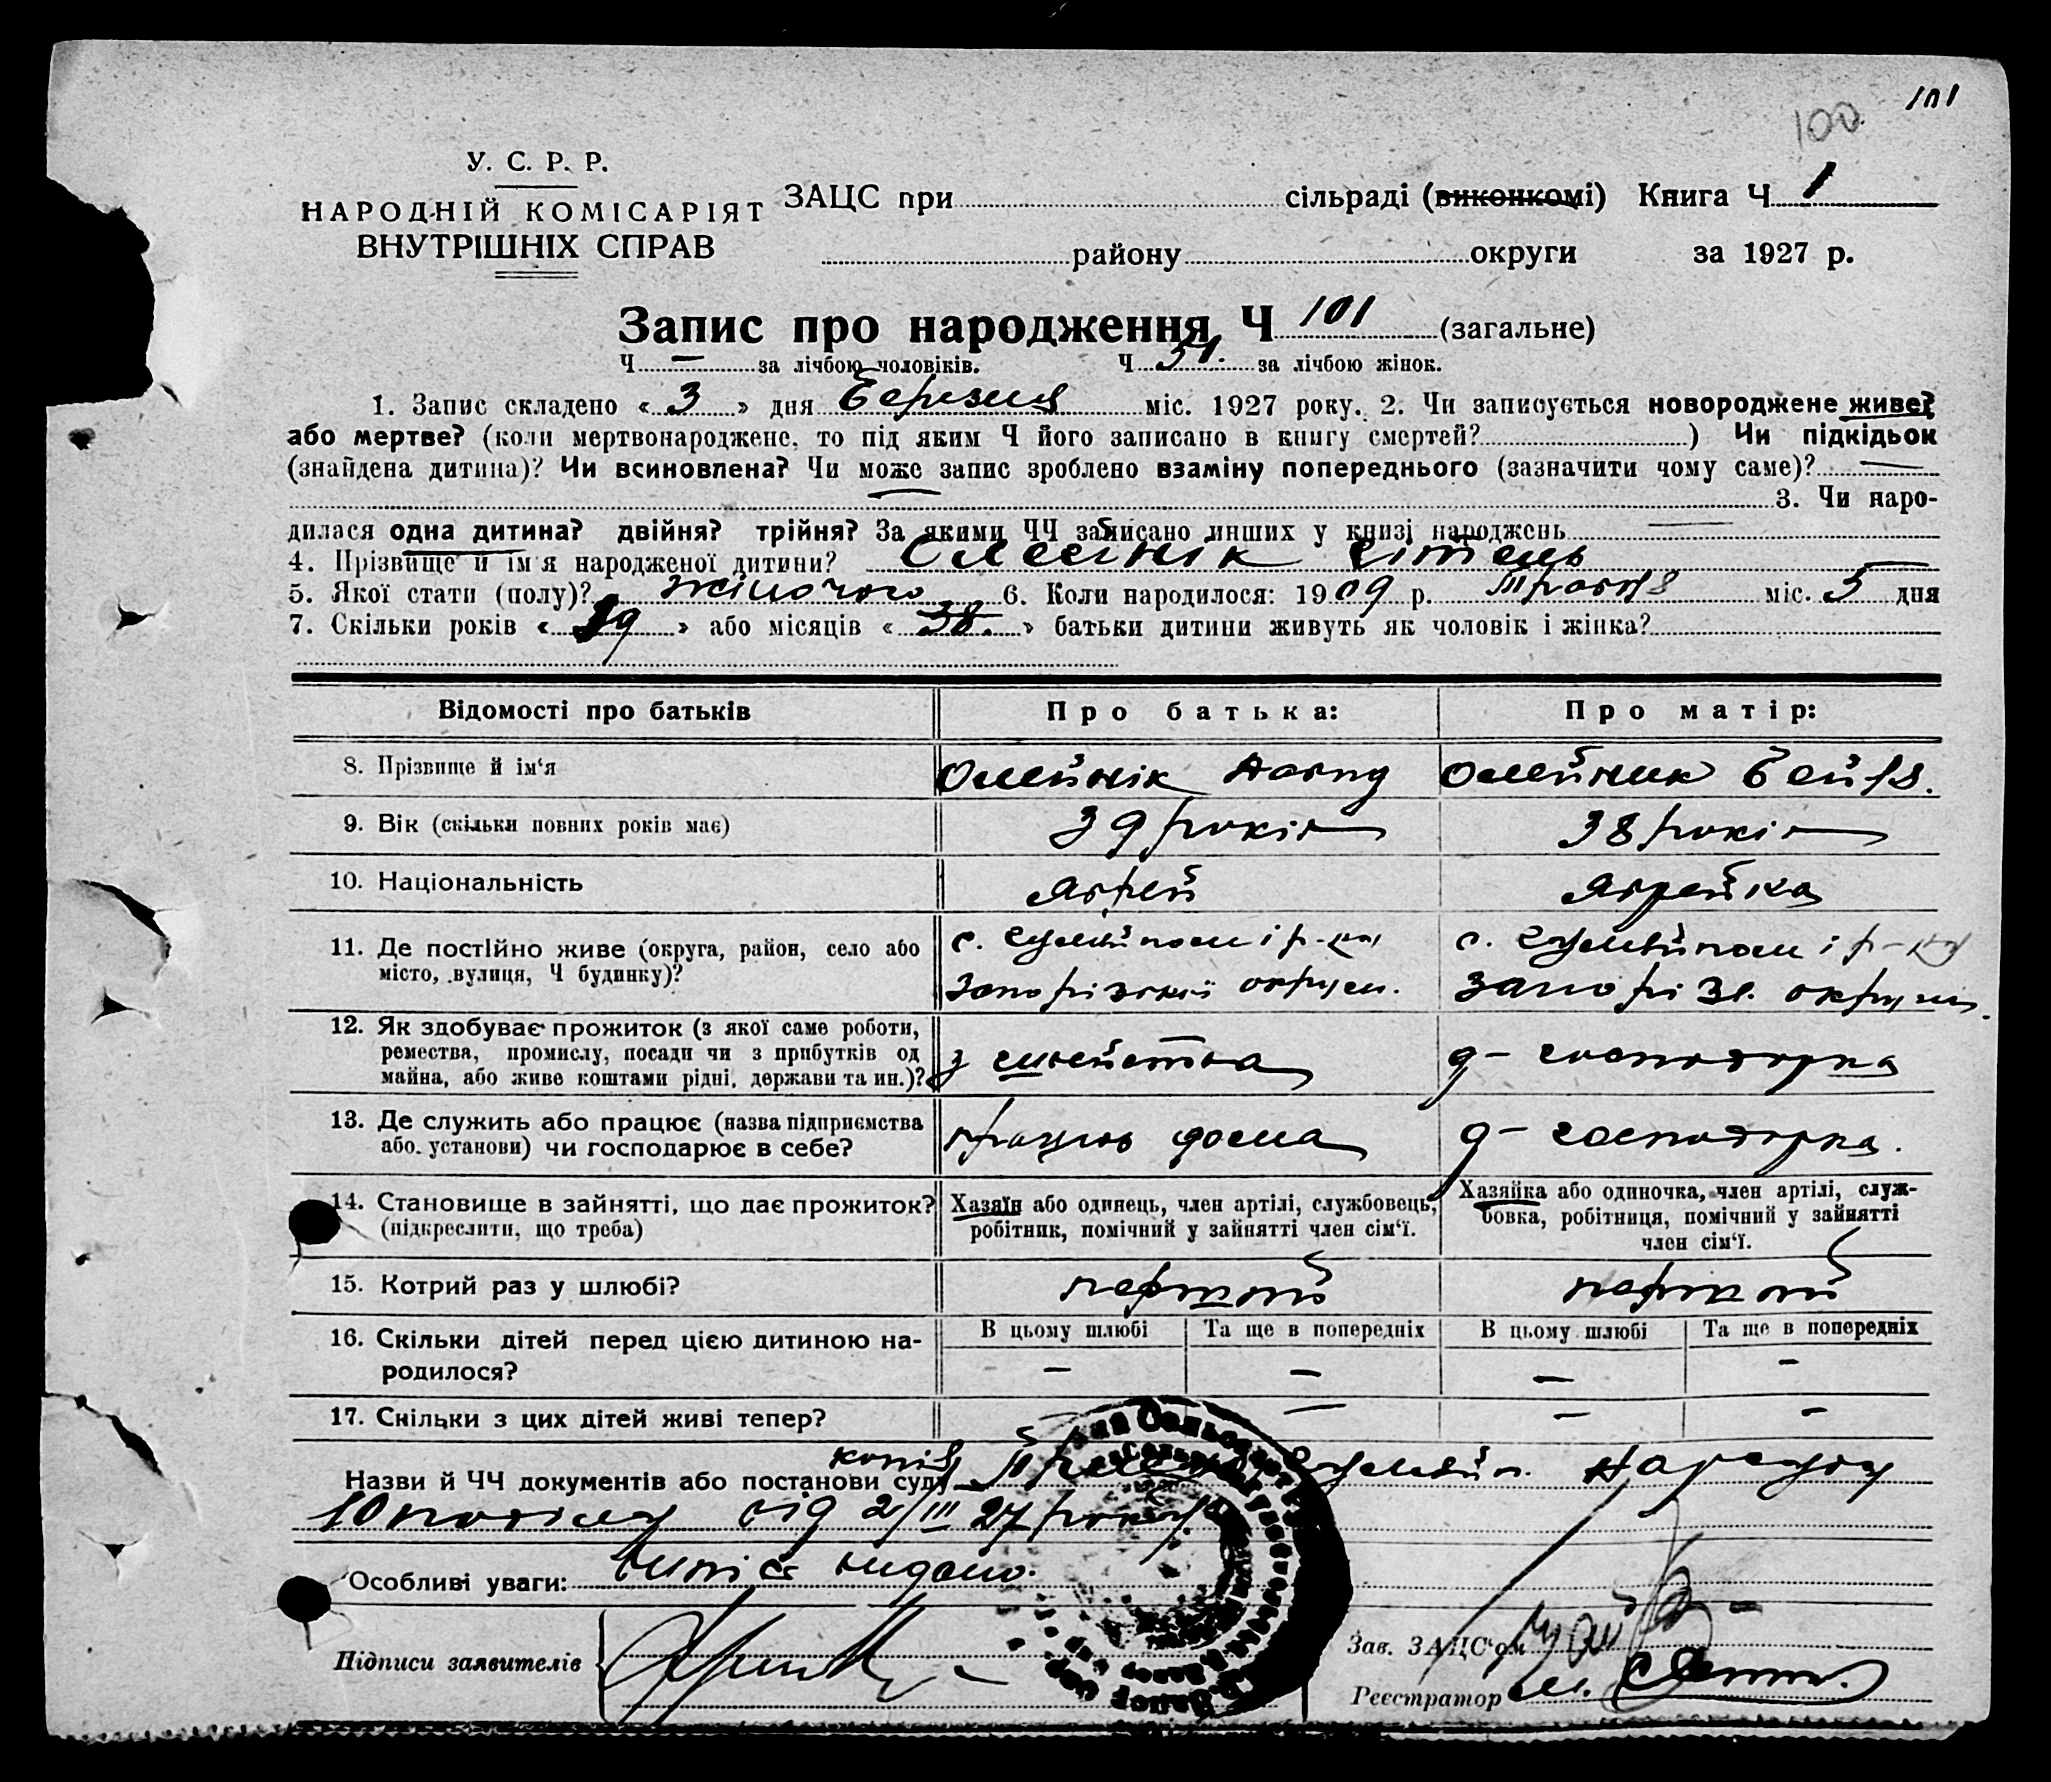 101
100
У. С. Р. Р.
НАРОДНІЙ КОМІСАРІЯТ
ВНУТРІШНІХ СПРАВ
ЗАЦС при сільраді (виконкомі) Книга Ч 1
району округи за 1927 р.
Запис про народження Ч 101 (загальне)
Ч — за лічбою чоловіків. Ч 51. за лічбою жінок.
1. Запис складено «3» дня Березня міс. 1927 року. 2. Чи записується новороджене живе?
або мертве? (коли мертвонароджене, то під яким Ч його записано в книгу смертей?) Чи підкідьок
(знайдена дитина)? Чи всиновлена? Чи може запис зроблено взаміну попереднього (зазначити чому саме)? —
3. Чи наро-
дилася одна дитина? двійня? трійня? За якими ЧЧ записано инших у книзі народжень —
4. Прізвище й ім'я народженої дитини? Олейнік
5. Якої стати (полу)? жіночого 6. Коли народилося: 1909 р. Травня міс. 5 дня
7. Скільки років «39» або місяців «38.» батьки дитини живуть як чоловік і жінка?
Відомості про батьків Про батька: Про матір:
8. Прізвище й ім'я Олейнік Олейник Бейля.
9. Вік (скільки повних років має) 39 років 38 років
10. Національність Яврей Яврейка
11. Де постійно живе (округа, район, село або с. Гуляйполе і р-ну с. Гуляйполе і р-ну
місто, вулиця, Ч будинку)? Запорізької округи. Запоріз. округи.
12. Як здобуває прожиток (з якої саме роботи,
ремества, промислу, посади чи з прибутків од з д-господорка
майна, або живе коштами рідні, держави та ин.)?
13. Де служить або працює (назва підприємства працює дома д-господорка.
або установи) чи господарює в себе?
14. Становище в зайнятті, що дає прожиток? Хазяїн або одинець, член артілі, службовець, Хазяйка або одиночка, член артілі, служ-
(підкреслити, що треба) робітник, помічний у зайнятті член сім'ї. бовка, робітниця, помічний у зайнятті
член сім'ї.
15. Котрий раз у шлюбі? первий первий
16. Скільки дітей перед цією дитиною на- В цьому шлюбі Та ще в попередніх В цьому шлюбі Та ще в попередніх
родилося? — — — —
17. Скільки з цих дітей живі тепер? — — — —
Назви й ЧЧ документів або постанови суду копія Гуляйп. Нарсуду
10 від 2/III 27 року.
Особливі уваги:
Підписи заявителів
Зав. ЗАЦС'ом
Реєстратор